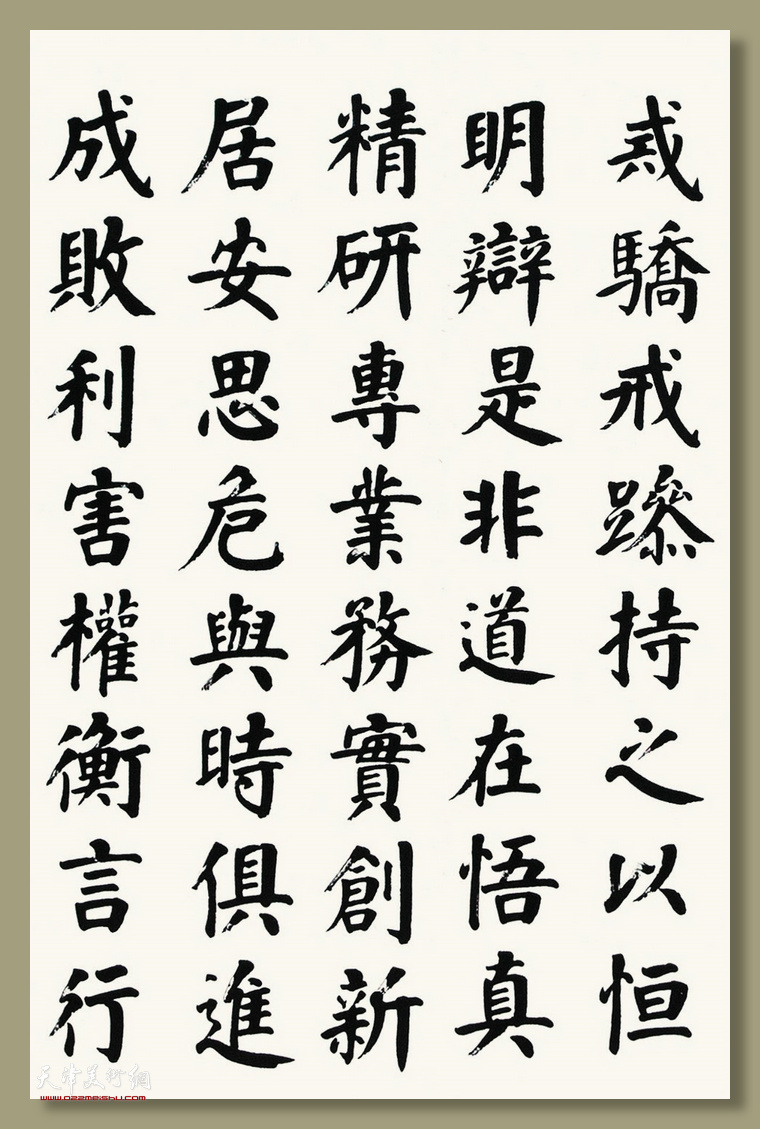 驕戒躁持之以恒
明辯是非道在悟真
精研專業務實創新
居安思危與時俱進
成敗利害權衡言行
天津美術網